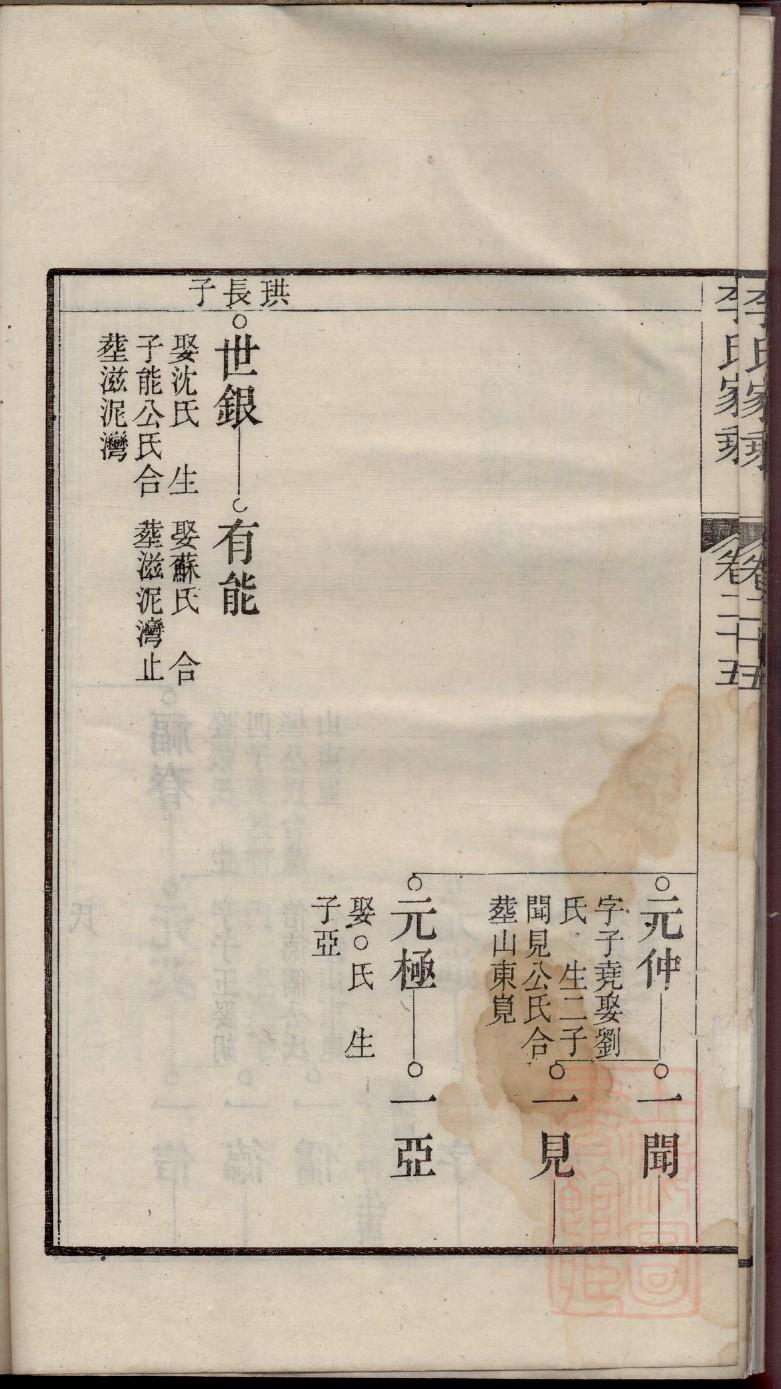 李氏家乘
卷二十五
元仲
字子堯娶劉
氏 生二子
聞見公氏合
塟山東嵬
一聞
一見
元極
娶○氏 生
子亞
一亞
珙長子
世銀
娶沈氏 生
子能公氏合
塟滋泥灣
有能
娶蘇氏 合
塟滋泥灣止